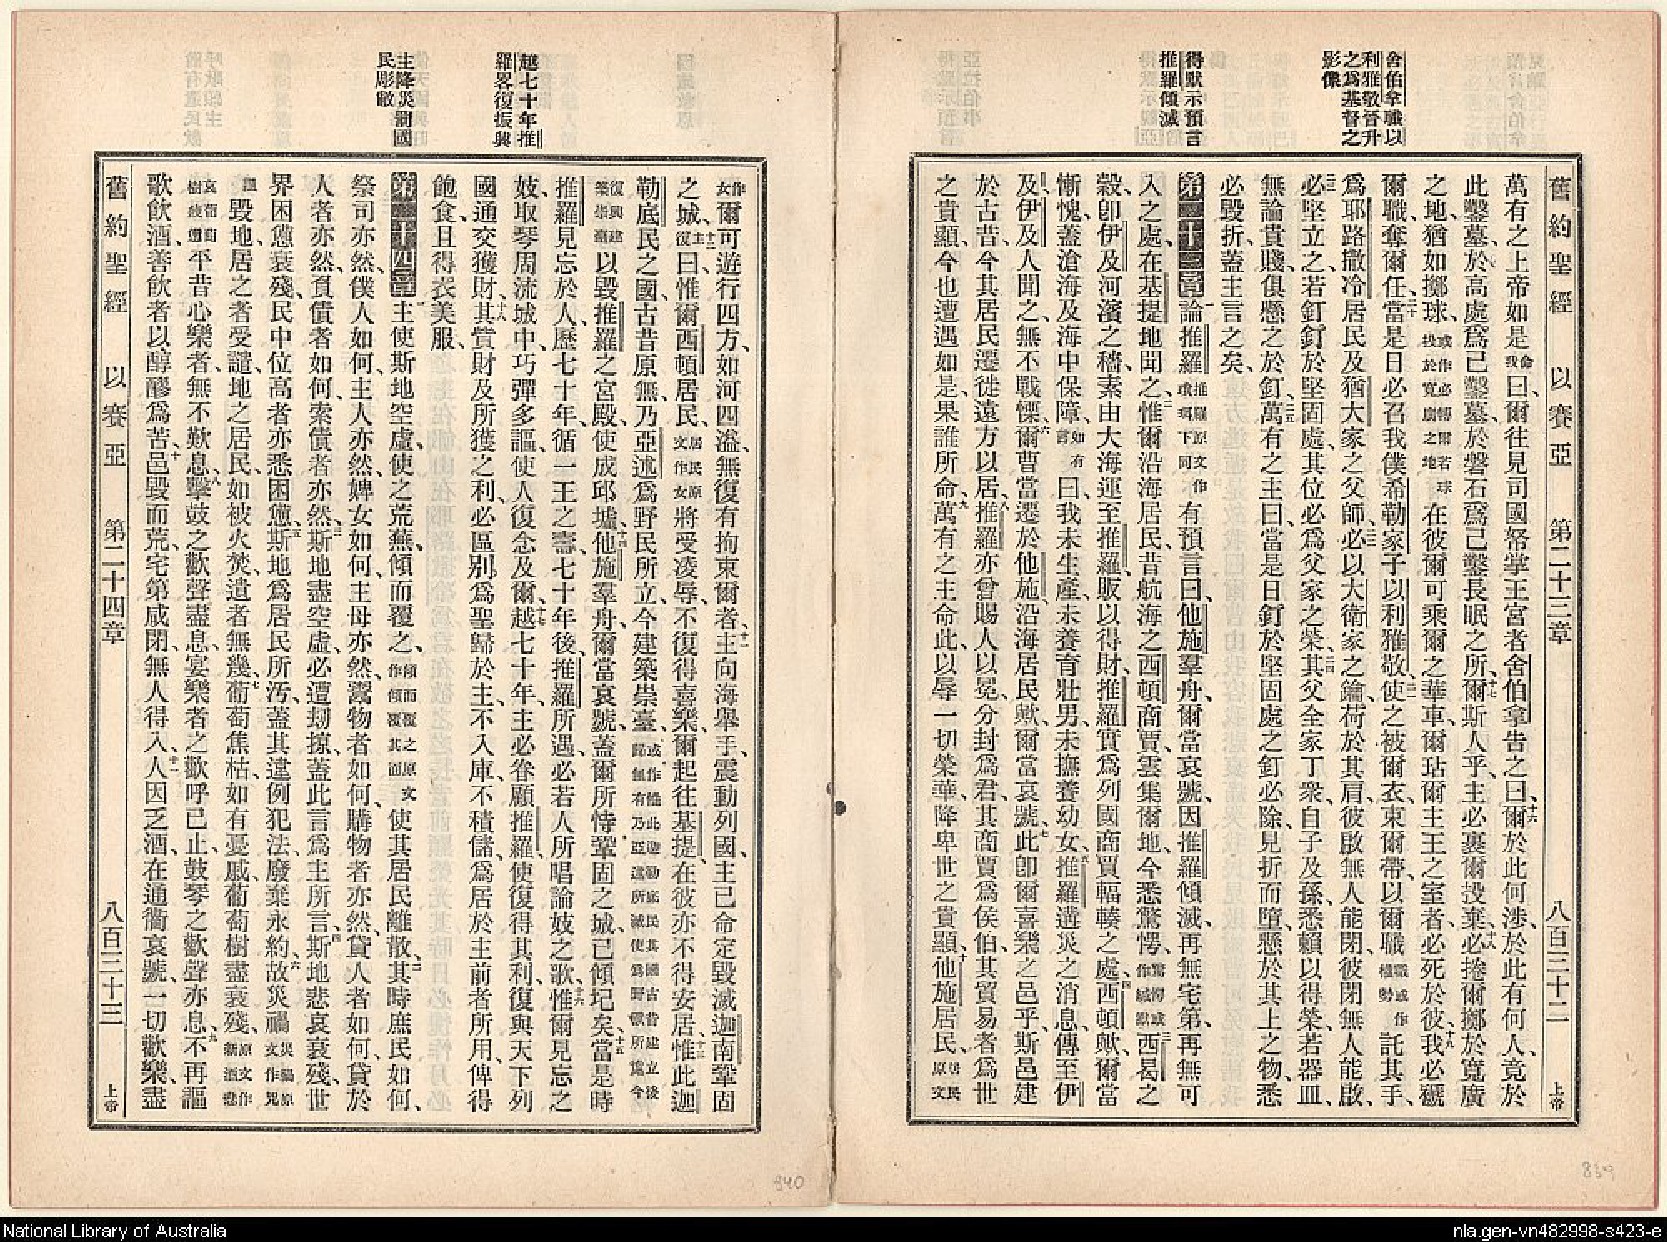 舍伯拿職以
利雅敬晉升
之爲基督之
影像
得默示預言
推羅傾滅
舊約聖經 以賽亞 第二十三章 八百三十二 上帝
萬有之上帝如是命我曰、爾往見司國帑掌王宮者舍伯拿告之曰、十六爾於此何涉、於此有何人、竟於
此鑿墓、於高處爲己鑿墓、於磐石爲己鑿長眠之所、十七爾斯人乎、主必裹爾投棄、十八必捲爾擲於寬廣
之地、猶如擲球、或作必輾爾若球投於寬廣之地在彼爾可乘爾之華車、爾玷爾主王之室者、必死於彼、十九我必褫
爾職、奪爾任、二十當是日必召我僕希勒家子以利雅敬、二一使之被爾衣、束爾帶、以爾職職或作權勢託其手、
爲耶路撒冷居民及猶大家之父師、二二必以大衛家之鑰、荷於其肩、彼啟無人能閉、彼閉無人能啟、
二三必堅立之、若釘釘於堅固處、其位必爲父家之榮、二四其父全家丁衆、自子及孫、悉賴以得榮、若器皿、
無論貴賤、俱懸之於釘、二五萬有之主曰、當是日釘於堅固處之釘必除、見折而墮、懸於其上之物、悉
必毀折、蓋主言之矣、
第二十三章 一論推羅推羅原文作瑣珥下同有預言曰、他施羣舟、爾當哀號、因推羅傾滅、再無宅第、再無可
入之處、在基提地聞之、二惟爾沿海居民、昔航海之西頓商賈雲集爾地、今悉驚愕、驚愕或作緘默三西曷之
穀、卽伊及河濱之穡、素由大海運至推羅、販以得財、推羅實爲列國商賈輻輳之處、四西頓歟、爾當
慚愧、蓋滄海及海中保障、如有言曰、我未生產、未養育壯男、未撫養幼女、五推羅遘災之消息、傳至伊
及、伊及人聞之、無不戰慄、六爾曹當遷於他施、沿海居民歟、爾當哀號、七此卽爾喜樂之邑乎、斯邑建
於古昔、今其居民遷徙遠方以居、八推羅亦曾賜人以冕、分封爲君、其商賈爲侯伯、其貿易者爲世
之貴顯、今也遭遇如是、果誰所命、九萬有之主命此、以辱一切榮華、降卑世之貴顯、十他施居民、居民原文
越七十年推
羅畧復振興
主降災削國
民彫敝
作女爾可遊行四方、如河四溢、無復有拘束爾者、十一主向海舉手、震動列國、主已命定毀滅迦南鞏固
之城、十二主復曰、惟爾西頓居民居民原文作女將受凌辱、不復得喜樂、爾起往基提、在彼亦不得安居、十三惟此迦
勒底民之國、古昔原無、乃亞述爲野民所立、今建築崇臺、以毀推羅之宮殿、使成邱墟、十四他施羣舟、爾當哀號、蓋爾所恃鞏固之城、已傾圮矣、十五當是時
推羅見忘於人、歷七十年、循一王之壽、七十年後、推羅所遇、必若人所唱論妓之歌、十六惟爾見忘之
妓、取琴周流城中、巧彈多謳、使人復念及爾、十七越七十年、主必眷顧推羅、使復得其利、復與天下列
國通交獲財、十八其貲財及所獲之利、必區別爲聖、歸於主、不入庫、不積儲、爲居於主前者所用、俾得
飽食、且得衣美服、
第二十四章 一主使斯地空虛、使之荒蕪、傾而覆之、傾而覆之原文作傾覆其面使其居民離散、二其時庶民如何、
祭司亦然、僕人如何、主人亦然、婢女如何、主母亦然、鬻物者如何、購物者亦然、貸人者如何、貸於
人者亦然、負債者如何、索債者亦然、三斯地盡空虛、必遭刼掠、蓋此言爲主所言、四斯地悲哀衰殘、世
界困憊衰殘、民中位高者亦悉困憊、五斯地爲居民所污、蓋其違例犯法、廢棄永約、六故災禍災禍原文作咒
詛毀地、居之者受譴、地之居民、如被火焚、遺者無幾、七葡萄焦枯、如有憂戚、葡萄樹盡衰殘、原文作新酒悲
哀葡萄樹衰殘平昔心樂者、無不歎息、八擊鼓之歡聲盡息、宴樂者之歡呼已止、鼓琴之歡聲亦息、九不再謳
歌飲酒、善飲者以醇醪爲苦、十邑毀而荒、宅第咸閉、無人得入、十一人因乏酒、在通衢哀號、一切歡樂盡
舊約聖經 以賽亞 第二十四章 八百三十三 上帝
840
839
National Library of Australia
nla.gen-vn482998-s423-e